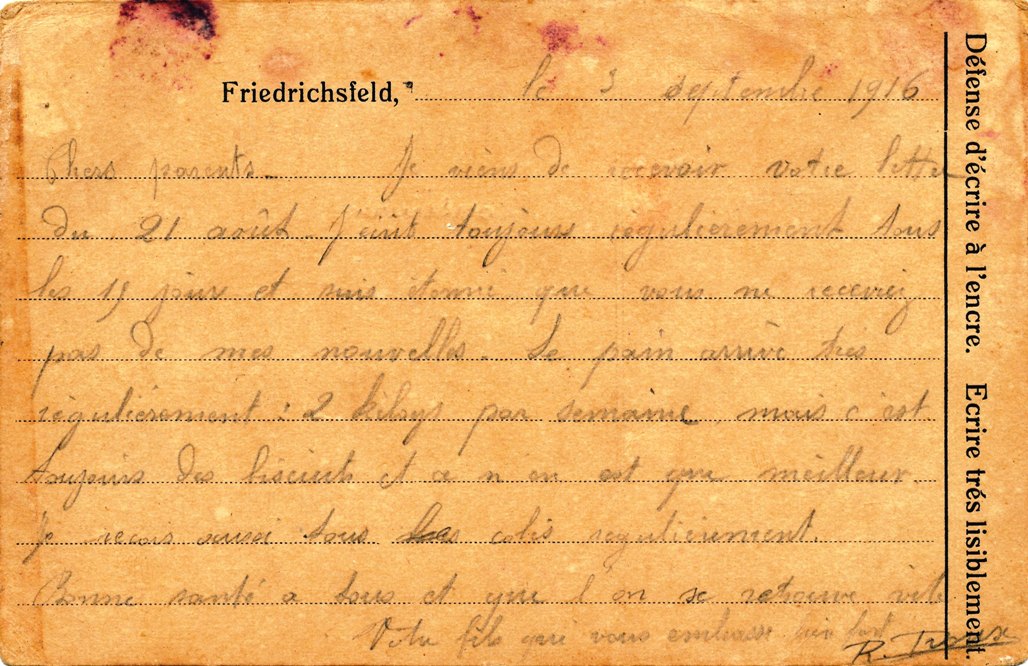 Friedrichsfeld, le 3 septembre 1916
Chers parents. Je viens de recevoir votre lettre
du 21 août. J'écrit toujours régulièrement tous
les 15 jour et suis étonné que vous ne receviez
pas de mes nouvelles. Le pain arrive très
régulièrement : 2 kilogs par semaine, mais c'est
toujours des biscuits et ce n'en est que meilleur.
Je reçois aussi tous les colis régulièrement.
Bonne santé a tous et que l'on se retrouve vite
Votre fils qui vous embrasse bien fort
R.
Défense d'écrire à l'encre. Ecrire trés lisiblement.